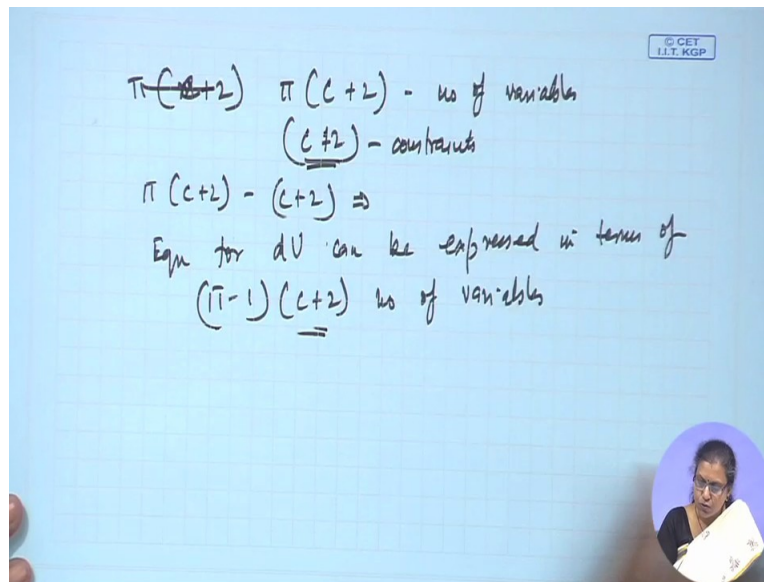 © CET
I.I.T. KGP
π (c+2) π (c+2) - no of variables
(c+2) - constraints
π (c+2) - (c+2) ⇒
Equn for dU can be expressed in terms of
(π-1) (c+2) no of variables